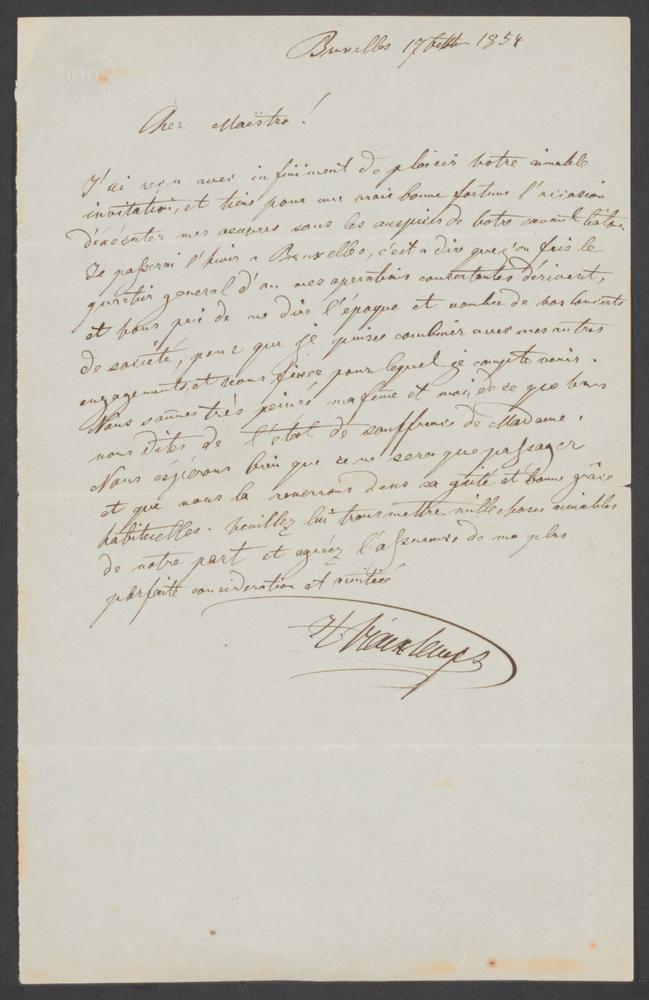 Bruxelles 17 8bre 1854
Cher Maëstro!
J'ai reçu avec infiniment de plaisir votre aimable
invitation, et tiens pour une vraie bonne fortune l'occasion
d'éxécuter mes oeuvres sous les auspices de votre savant bâton.
Je passerai l'hiver a Bruxelles, c'est a dire que j'en fais le
quartier general d'ou mes operations concertantes dérivent,
et vous prie de me dire l'époque et nombre de vos concerts
de société, pour que je puisse combiner avec mes autres
engagements, et nous fixer pour lequel je compte venir.
Nous sommes très peinés ma femme et moi, de ce que vous
nous dites de l'état de souffrance de Madame.
Nous éspérons bien que ce ne sera que passager
et que nous la reverrons dans sa gaité et bonne grâce
habituelles. Veuillez lui transmettre mille choses aimables
de notre part et agréez l'assurance de ma plus
parfaite consideration et amitiée
H Vieuxtemps